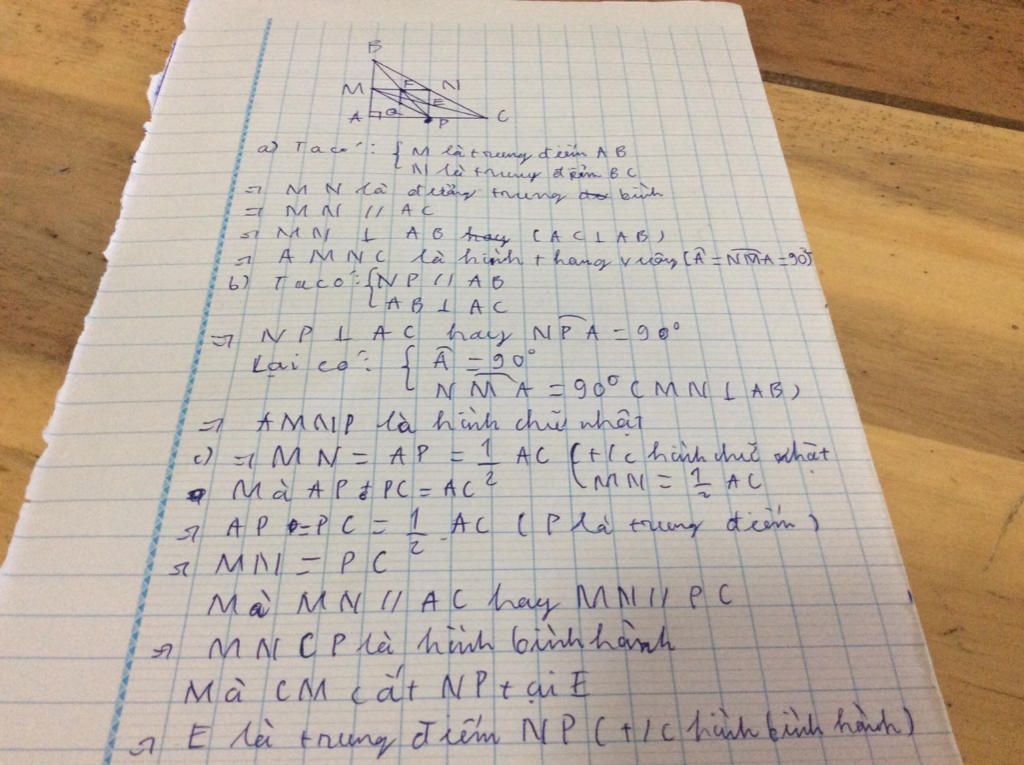 B
M F N
E
A Q P C
a) Ta có: { M là trung điểm AB
N là trung điểm BC
⇒ MN là đường trung bình
⇒ MN // AC
⇒ MN ⊥ AB (AC ⊥ AB)
⇒ AMNC là hình thang vuông (Â = NMA = 90°)
b) Ta có: { NP // AB
AB ⊥ AC
⇒ NP ⊥ AC hay NPA = 90°
Lại có: { Â = 90°
NMA = 90° (MN ⊥ AB)
⇒ AMNP là hình chữ nhật
c) ⇒ MN = AP = 1/2 AC { t/c hình chữ nhật
MN = 1/2 AC
Mà AP + PC = AC
⇒ AP = PC = 1/2 AC (P là trung điểm)
⇒ MN = PC
Mà MN // AC hay MN // PC
⇒ MNCP là hình bình hành
Mà CM cắt NP tại E
⇒ E là trung điểm NP (t/c hình bình hành)